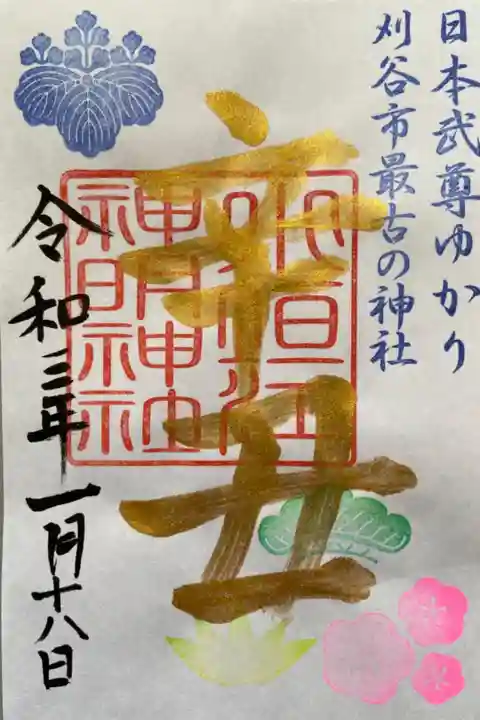 日本武尊ゆかり
刈谷市最古の神社
辛丑
令和三年一月十八日